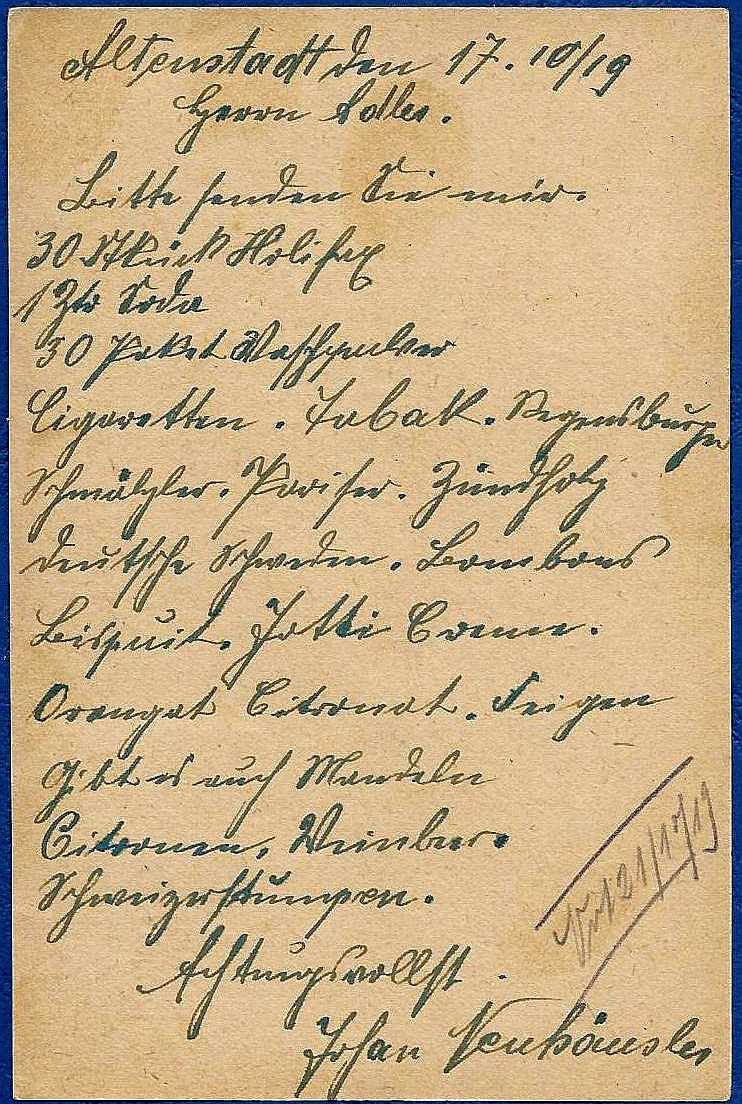 Altenstadt den 17. 10/19
Herrn Adler.
Bitte senden Sie mir.
30 Stkück Holifax
1 Ztr Soda
30 Paket Waschpulver
Cigaretten. Tabak. Regensburger
Schmalzler. Pariser. Zündholz
deutsche Schweden. Bombons
Bisquit. Crem.
Orangat Citronat. Feigen
Gibt es auch Mandeln
Citronen, Weinber.
Schweizerstumpen.
Achtungsvollst.
Johan Neuhäusler
21/10/19